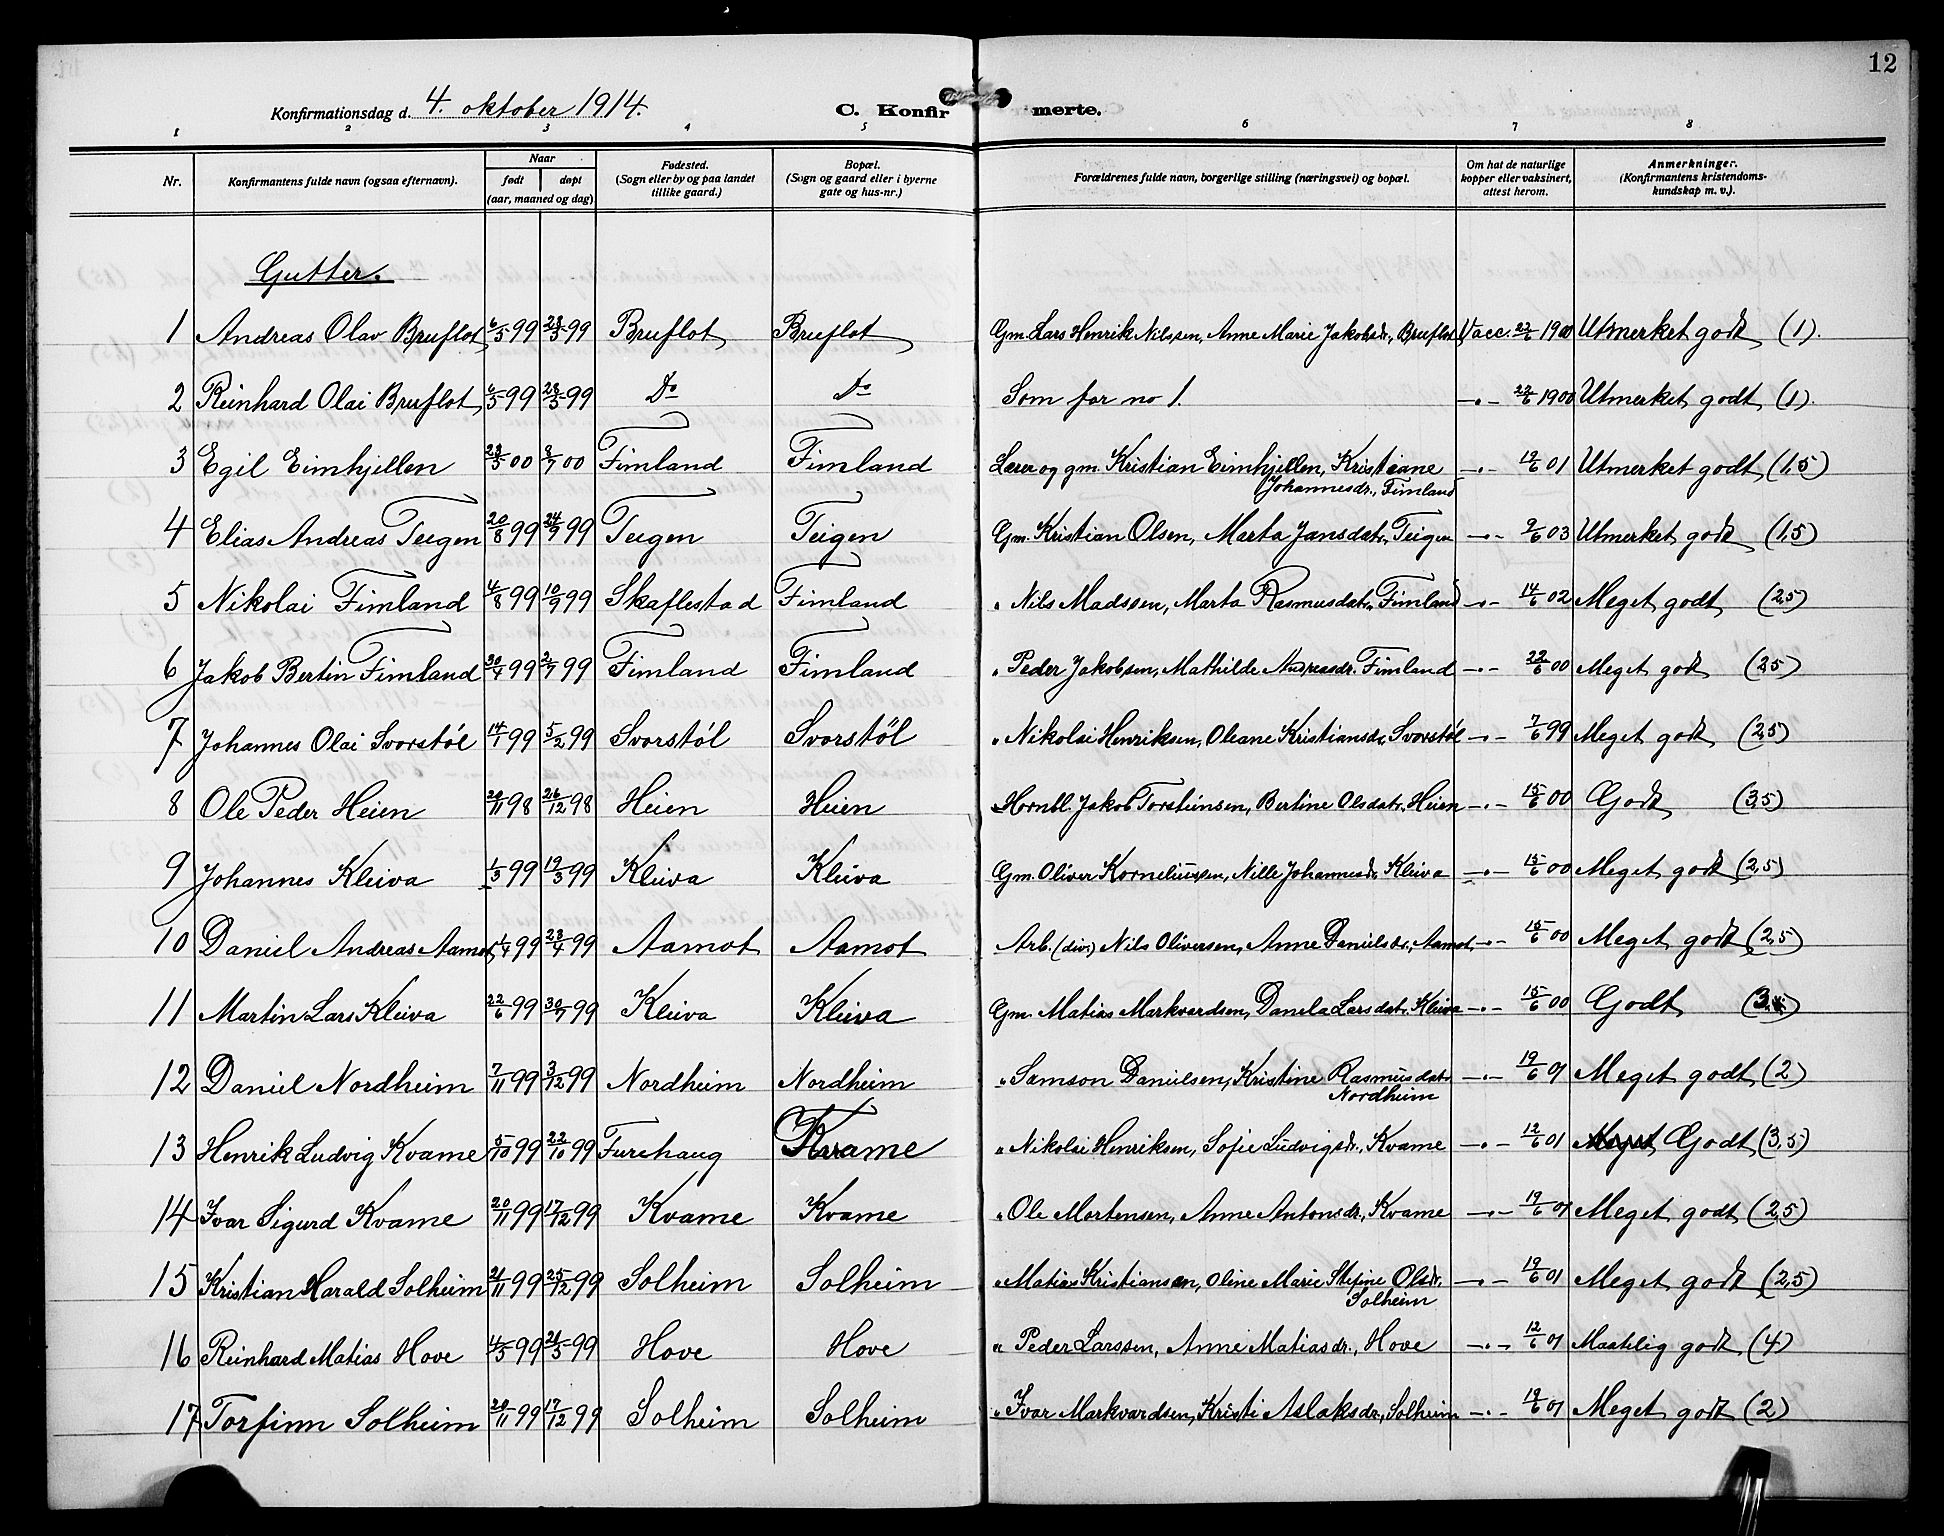 12
Konfirmationsdag d. 4. oktober 1914.
C. Konfirmerte.
1 2 3 4 5 6 7 8
Nr. Konfirmantens fulde navn (ogsaa efternavn). Naar født døpt (aar, maaned og dag) Fødested. (Sogn eller by og paa landet tillike gaard.) Bopæl. (Sogn og gaard eller i byerne gate og hus-nr.) Forældrenes fulde navn, borgerlige stilling (næringsvei) og bopæl. Om hat de naturlige kopper eller vaksinert, attest herom. Anmerkninger. (Konfirmantens kristendomskundskap m. v.).
Gutter.
1 Andreas Olav Bruflot 6/5 99 28/5 99 Bruflot Bruflot Gm. Lars Henrik Nilssen, Anne Marie Jakobsdr., Bruflot Vacc. 22/6 1900 Utmerket godt (1).
2 Reinhard Olai Bruflot 6/5 99 28/5 99 Do Do Som for no 1. -"- 22/6 1900 Utmerket godt (1).
3 Egil Eimhjellen 28/5 00 8/7 00 Fimland Fimland Lærer og gm. Kristian Eimhjellen, Kristiane Johannesdr., Fimland -"- 19/6 01 Utmerket godt (1,5)
4 Elias Andreas Teigen 20/8 99 24/9 99 Teigen Teigen Gm. Kristian Olsen, Marta Jansdatr., Teigen -"- 9/6 03 Utmerket godt (1,5)
5 Nikolai Fimland 4/8 99 10/9 99 Skaflestad Fimland " Nils Madssen, Marta Rasmusdatr., Fimland -"- 14/6 02 Meget godt (2,5)
6 Jakob Bertin Fimland 30/4 99 2/7 99 Fimland Fimland " Peder Jakobsen, Mathilde Andreasdr. Fimland -"- 22/6 00 Meget godt (2,5)
7 Johannes Olai Svorstøl 14/1 99 5/2 99 Svorstøl Svorstøl " Nikolai Henriksen, Oleane Kristiansdr., Svorstøl -"- 7/6 99 Meget godt (2,5)
8 Ole Peder Heien 20/11 98 26/12 98 Heien Heien Hornbl. Jakob Torsteinsen, Bertine Olsdatr., Heien -"- 15/6 00 Godt (3,5)
9 Johannes Kleiva 1/3 99 19/3 99 Kleiva Kleiva Gm. Oliver Korneliussen, Nille Johannesdr., Kleiva -"- 15/6 00 Meget godt (2,5)
10 Daniel Andreas Aamot 1/4 99 23/4 99 Aamot Aamot Arb. (div.) Nils Oliversen, Anne Danielsdr., Aamot -"- 15/6 00 Meget godt (2,5)
11 Martin Lars Kleiva 22/6 99 30/7 99 Kleiva Kleiva Gm. Matias Markvardsen, Danela Larsdatr., Kleiva -"- 15/6 00 Godt
12 Daniel Nordheim 7/11 99 3/12 99 Nordheim Nordheim " Samson Danielsen, Kristine Rasmusdatr. Nordheim -"- 19/6 01 Meget godt (2)
13 Henrik Ludvig Kvame 5/10 99 22/10 99 Furehaug Kvame " Nikolai Henriksen, Sofie Ludvigsdr., Kvame -"- 12/6 01 Meget Godt (3,5)
14 Ivar Sigurd Kvame 20/11 99 17/12 99 Kvame Kvame " Ole Mortensen, Anne Antonsdr., Kvame -"- 19/6 01 Meget godt (2,5)
15 Kristian Harald Solheim 21/11 99 25/12 99 Solheim Solheim " Matias Kristiansen, Oline Marie Stefine Olsdr. Solheim -"- 19/6 01 Meget godt (2,5)
16 Reinhard Matias Hove 4/5 99 21/5 99 Hove Hove " Peder Larssen, Anne Matiasdr., Hove -"- 12/6 01 Maatelig godt (4)
17 Torfinn Solheim 20/11 99 17/12 99 Solheim Solheim " Ivar Markvardsen, Kristi Aslaksdr., Solheim -"- 19/6 01 Meget godt (2)